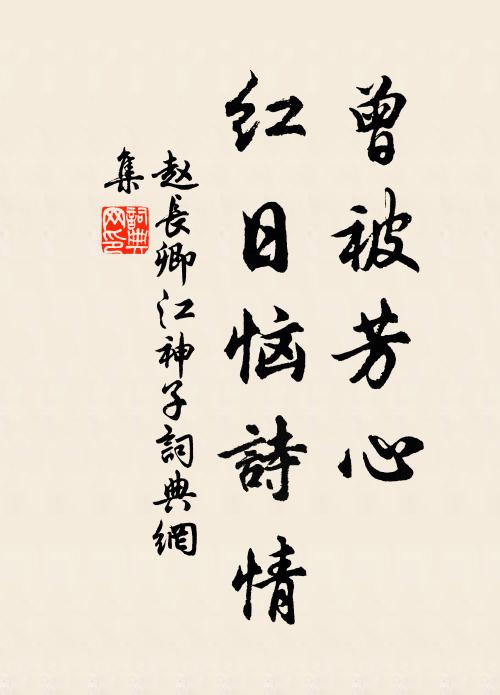 曾被芳心
红日恼詩情
赵長卿江神子詞典網
集
詞典網印